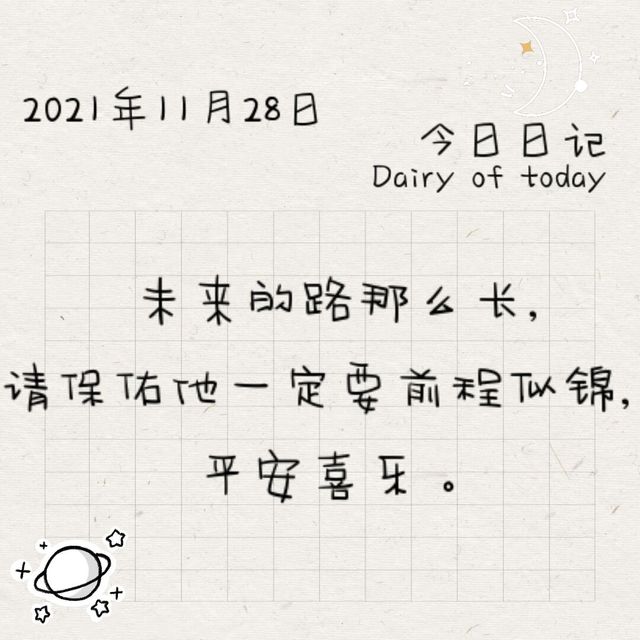 2021年11月28日
今日日记
Dairy of today
未来的路那么长,
请保佑他一定要前程似锦,
平安喜乐。